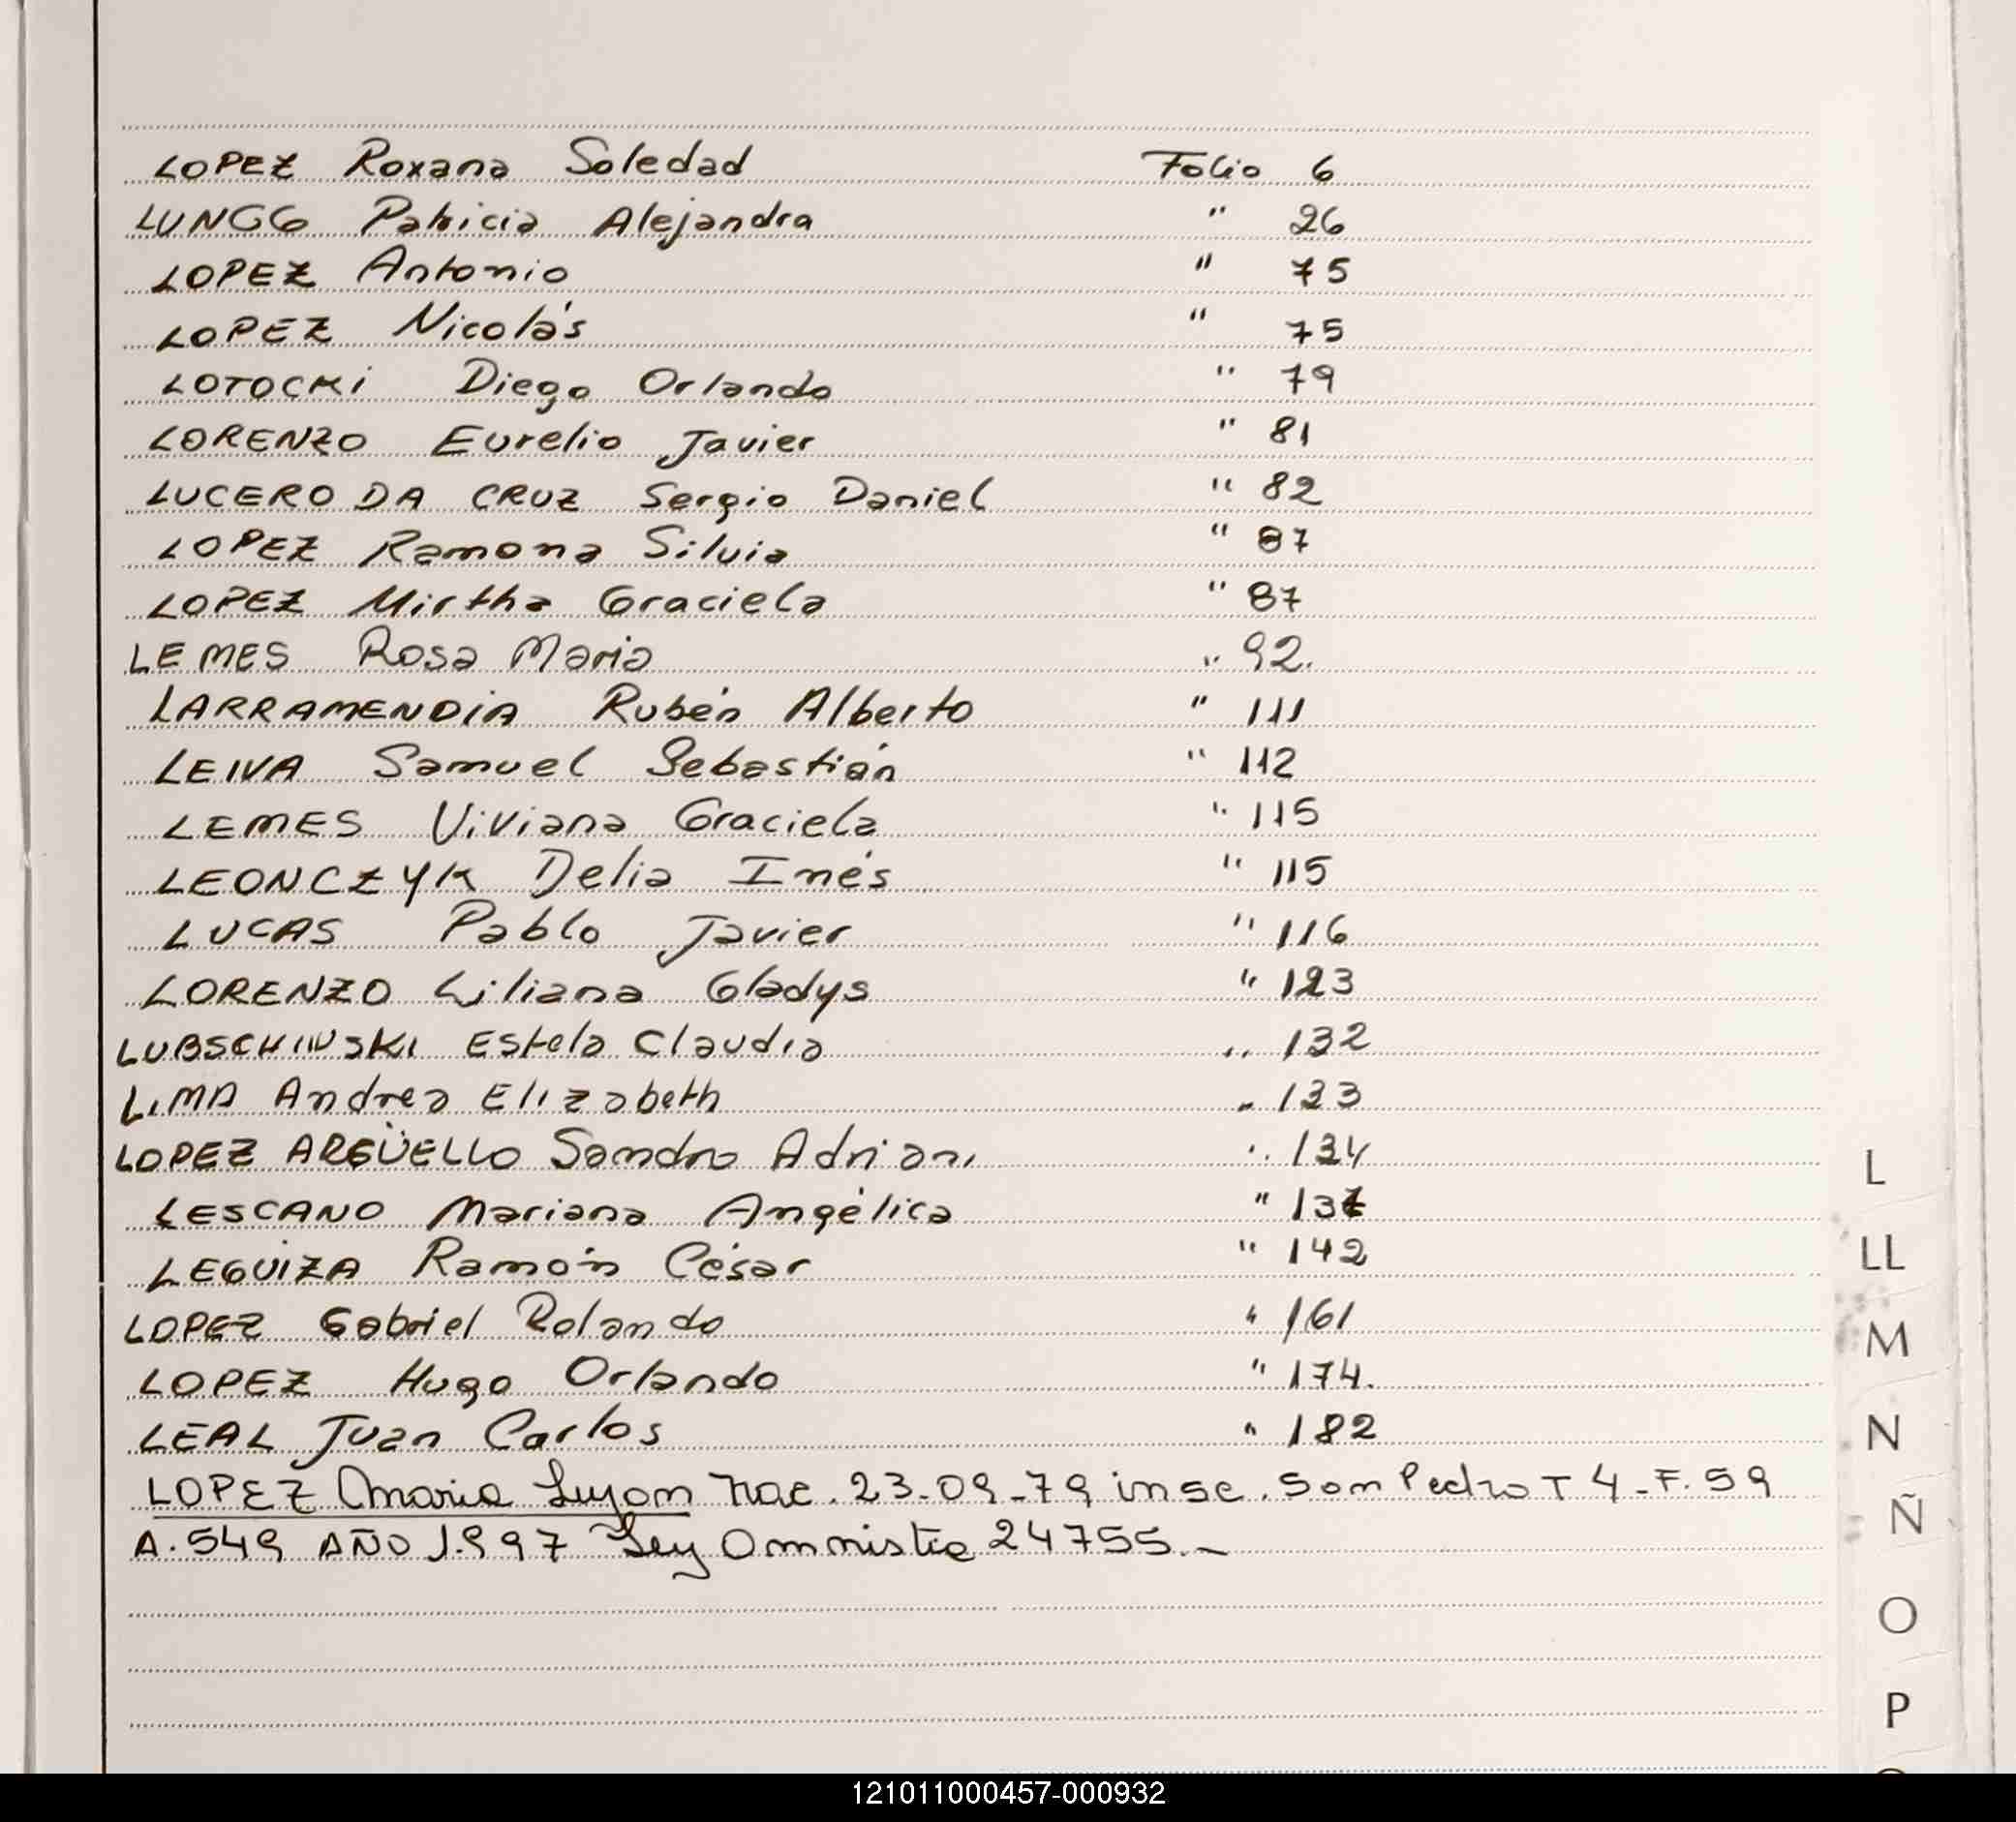 LOPEZ Roxana Soledad Folio 6
LUNGG Patricia Alejandra " 26
LOPEZ Antonio " 75
LOPEZ Nicolás " 75
LOTOCKi Diego Orlando " 79
LORENZO Eurelio Javier " 81
LUCERO DA CRUZ Sergio Daniel " 82
LOPEZ Ramona Silvia " 87
LOPEZ Mirtha Graciela " 87
LEMES Rosa Maria " 92.
LARRAMENDiA Rubén Alberto " 111
LEIVA Samuel Sebastián " 112
LEMES Viviana Graciela " 115
LEONCZYK Delia Inés " 115
LUCAS Pablo Javier " 116
LORENZO Liliana Gladys " 123
Estela Claudia " 132
LIMA Andrea Elizabeth " 133
LOPEZ ARGÜELLO Sandro Adrian " 134
LESCANO Mariana Angélica "
LEGUiZA Ramón César " 142
LOPEZ Gabriel Rolando " 161
LOPEZ Hugo Orlando " 174.
LEAL Juan Carlos " 182
LOPEZ Maria Lujan nac. 23-09-79 insc. San Pedro T 4-F. 59
A. 549 AÑO 1.997 Ley Amnistia 24755.-
L
LL
M
N
Ñ
O
P
121011000457-000932